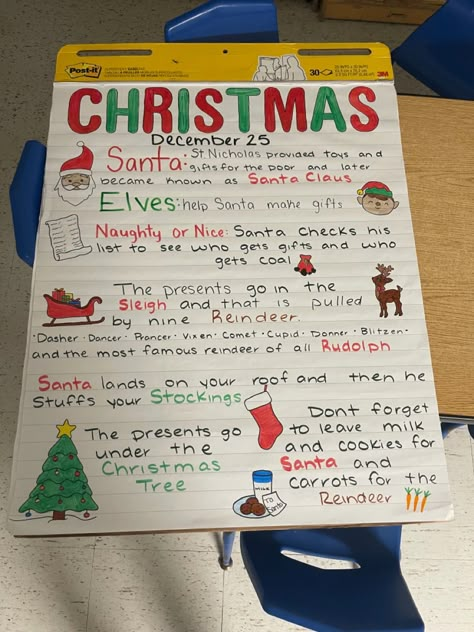 Post-it
30
3M
CHRISTMAS
December 25
Santa: St. Nicholas provided toys and
gifts for the poor and later
became known as Santa Claus
Elves: help Santa make gifts
Naughty or Nice: Santa checks his
list to see who gets gifts and who
gets coal
The presents go in the
Sleigh and that is pulled
by nine Reindeer.
·Dasher·Dancer·Prancer·Vixen·Comet·Cupid·Donner·Blitzen·
and the most famous reindeer of all Rudolph
Santa lands on your roof and then he
stuffs your Stockings
Dont forget
to leave milk
and cookies for
Santa and
carrots for the
Reindeer
The presents go
under the
Christmas
Tree
MILK
TO
Santa